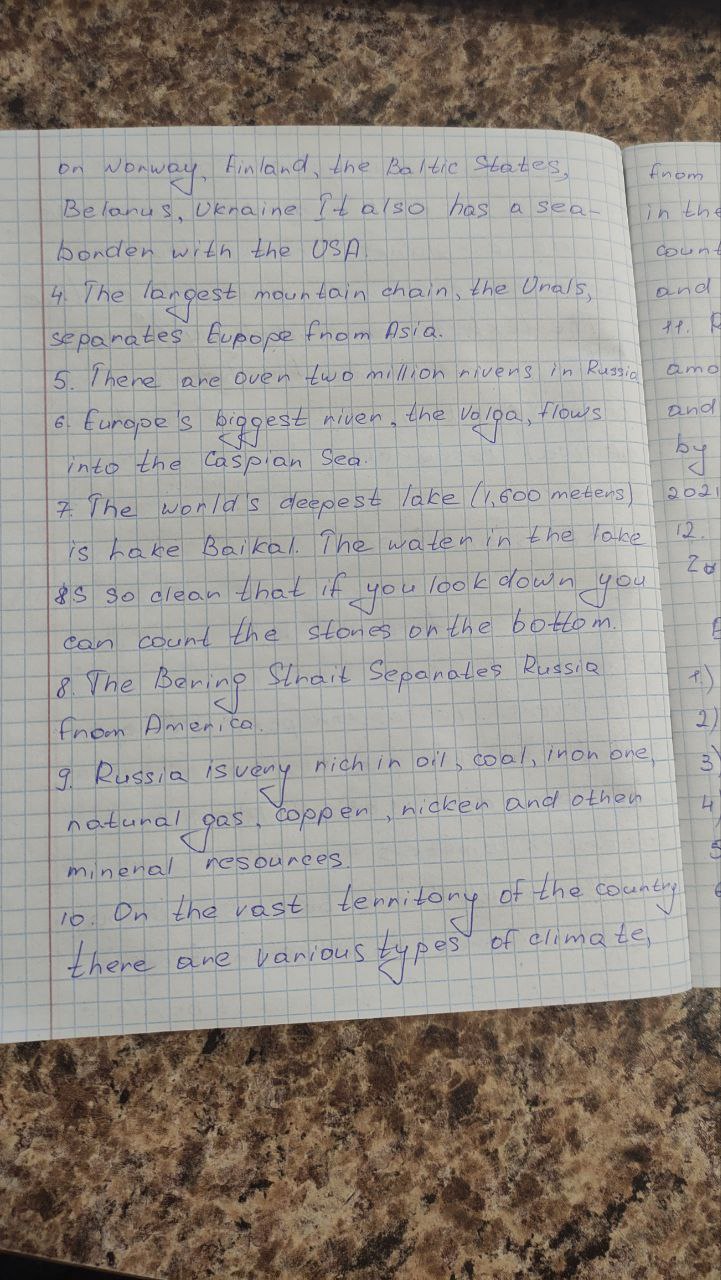 on Norway, Finland, the Baltic States,
Belarus, Ukraine It also has a sea-
border with the USA.
4. The largest mountain chain, the Urals,
separates Europe from Asia.
5. There are over two million rivers in Russia
6. Europe's biggest river, the Volga, flows
into the Caspian Sea.
7. The world's deepest lake (1,600 meters)
is Lake Baikal. The water in the lake
is so clean that if you look down you
can count the stones on the bottom.
8. The Bering Strait Separates Russia
from America.
9. Russia is very rich in oil, coal, iron ore,
natural gas, copper, nicker and other
mineral resources.
10. On the vast territory of the country
there are various types of climate,
from
in the
count
and
11. R
amo
and
by
2021
12.
1)
2)
3)
4
5